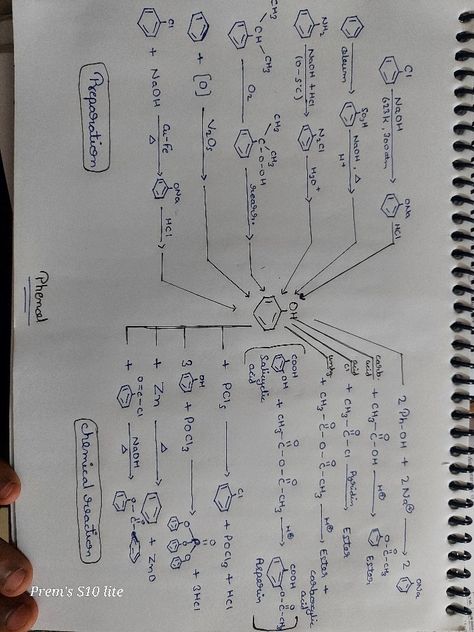 Preparation
Cl
NaOH
623K, 300atm
ONa
HCl
oleum
SO₃H
NaOH, Δ
H⁺
NH₂
NaOH + HCl
(0-5°C)
N₂Cl
H₂O⁺
CH₃
CH
CH₃
O₂
CH₃
C-O-O-H
CH₃
+ [O]
V₂O₅
Cl
+ NaOH
Cu-Fe
Δ
ONa
HCl
Phenol
OH
chemical reaction
2 Ph-OH + 2 Na
2
ONa
acid
+ CH₃-C-OH
O
H⊕
O-C-CH₃
O
Ester
acid
Cl
+ CH₃-C-Cl
O
Pyridin
Ester
+ CH₃-C-O-C-CH₃
O
O
H⊕
Ester +
carboxylic
acid
COOH
OH
+ CH₃-C-O-C-CH₃
O
O
H⊕
COOH
O-C-CH₃
O
Salicylic
acid
Asperin
+ PCl₅
Cl
+ POCl₃ + HCl
3
OH
+ POCl₃
+ 3HCl
+ Zn
Δ
+ ZnO
+
O=C-Cl
NaOH
Δ
Prem's S10 lite